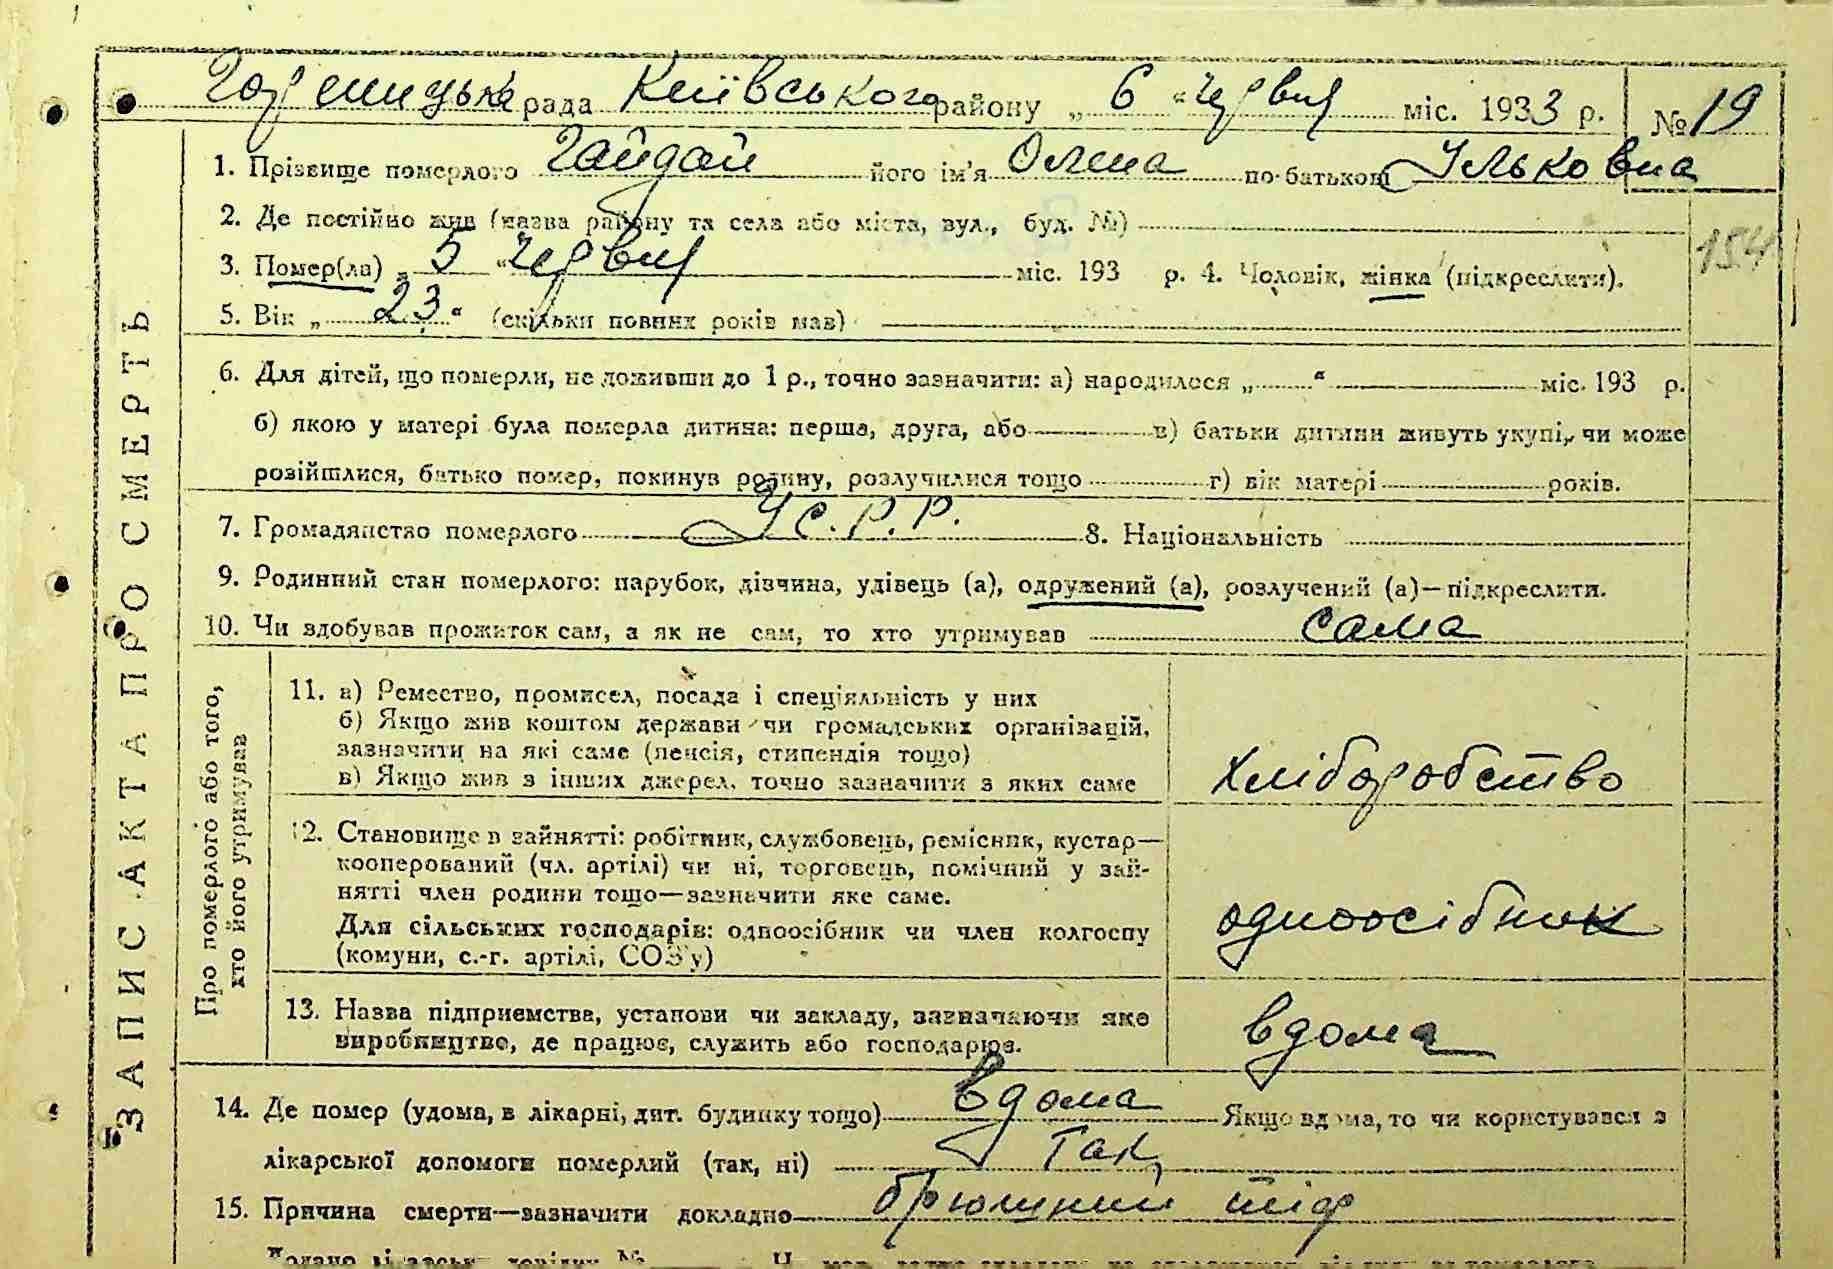 Гореницька рада Київського району „ 6 “ червня міс. 1933 р. № 19
1. Прізвище померлого Гайдай його ім’я Олена по батькові Ільковна
2. Де постійно жив (назва району та села або міста, вул., буд. №)
3. Помер(ла) „ 5 “ червня міс. 193 р. 4. Чоловік, жінка (підкреслити).
154
5. Вік „ 23 “ (скільки повних років мав)
6. Для дітей, що померли, не доживши до 1 р., точно зазначити: а) народилося „ “ міс. 193 р.
б) якою у матері була померла дитина: перша, друга, або в) батьки дитини живуть укупі, чи може
розійшлися, батько помер, покинув родину, розлучилися тощо г) вік матері років.
7. Громадянство померлого У.С.Р.Р. 8. Національність
9. Родинний стан померлого: парубок, дівчина, удівець (а), одружений (а), розлучений (а)—підкреслити.
10. Чи здобував прожиток сам, а як не сам, то хто утримував сама
ЗАПИС АКТА ПРО СМЕРТЬ
Про померлого або того,
хто його утримував
11. а) Ремество, промисел, посада і спеціяльність у них
б) Якщо жив коштом держави чи громадських організацій,
зазначити на які саме (пенсія, стипендія тощо)
в) Якщо жив з інших джерел, точно зазначити з яких саме
хліборобство
12. Становище в зайнятті: робітник, службовець, ремісник, кустар—
кооперований (чл. артілі) чи ні, торговець, помічний у зай-
нятті член родини тощо—зазначити яке саме.
Для сільських господарів: одноосібник чи член колгоспу
(комуни, с.-г. артілі, СОЗ’у)
одноосібник
13. Назва підприємства, установи чи закладу, зазначаючи яке
виробництво, де працює, служить або господарює.
вдома
14. Де помер (удома, в лікарні, дит. будинку тощо) вдома Якщо вдома, то чи користувався з
лікарської допомоги померлий (так, ні) Так
15. Причина смерти—зазначити докладно брюшний тіф